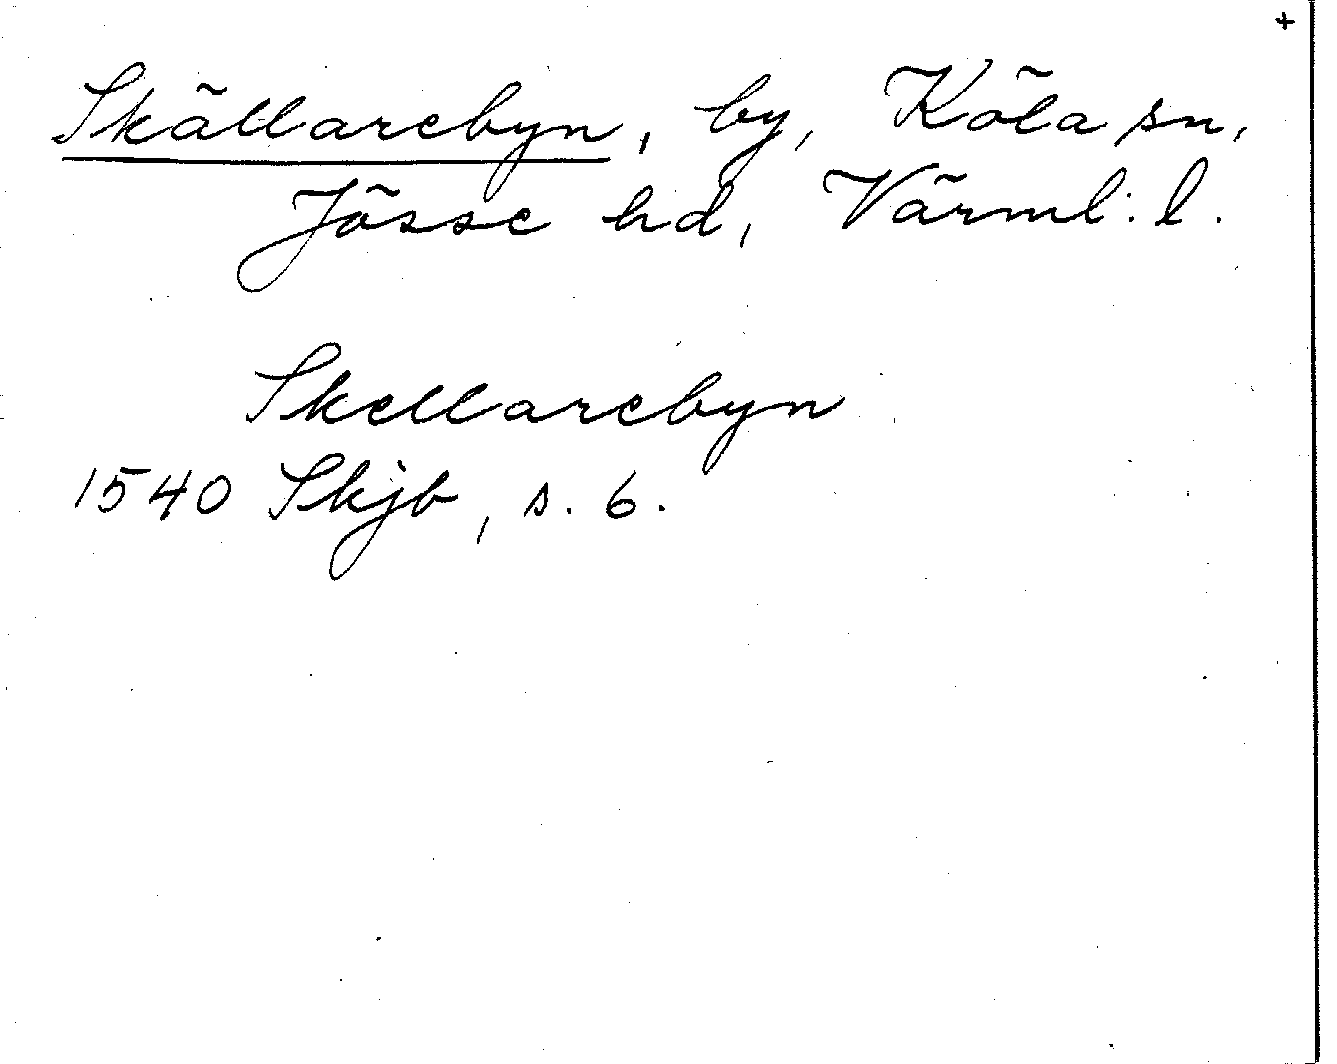 +
Skällarebyn, by, Köla sn,
Jösse hd, Värml. l.
Skellarebyn
1540 Skjb, s. 6.